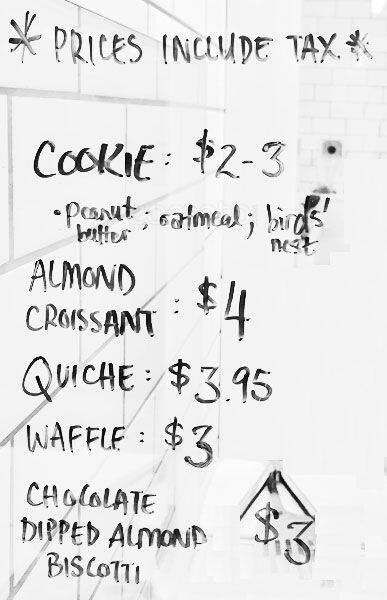 * PRICES INCLUDE TAX *
COOKIE : $2-3
• Peanut butter ; oatmeal ; birds' nest
ALMOND
CROISSANT : $4
QUICHE : $3.95
WAFFLE : $3
CHOCOLATE
DIPPED ALMOND $3
BISCOTTI